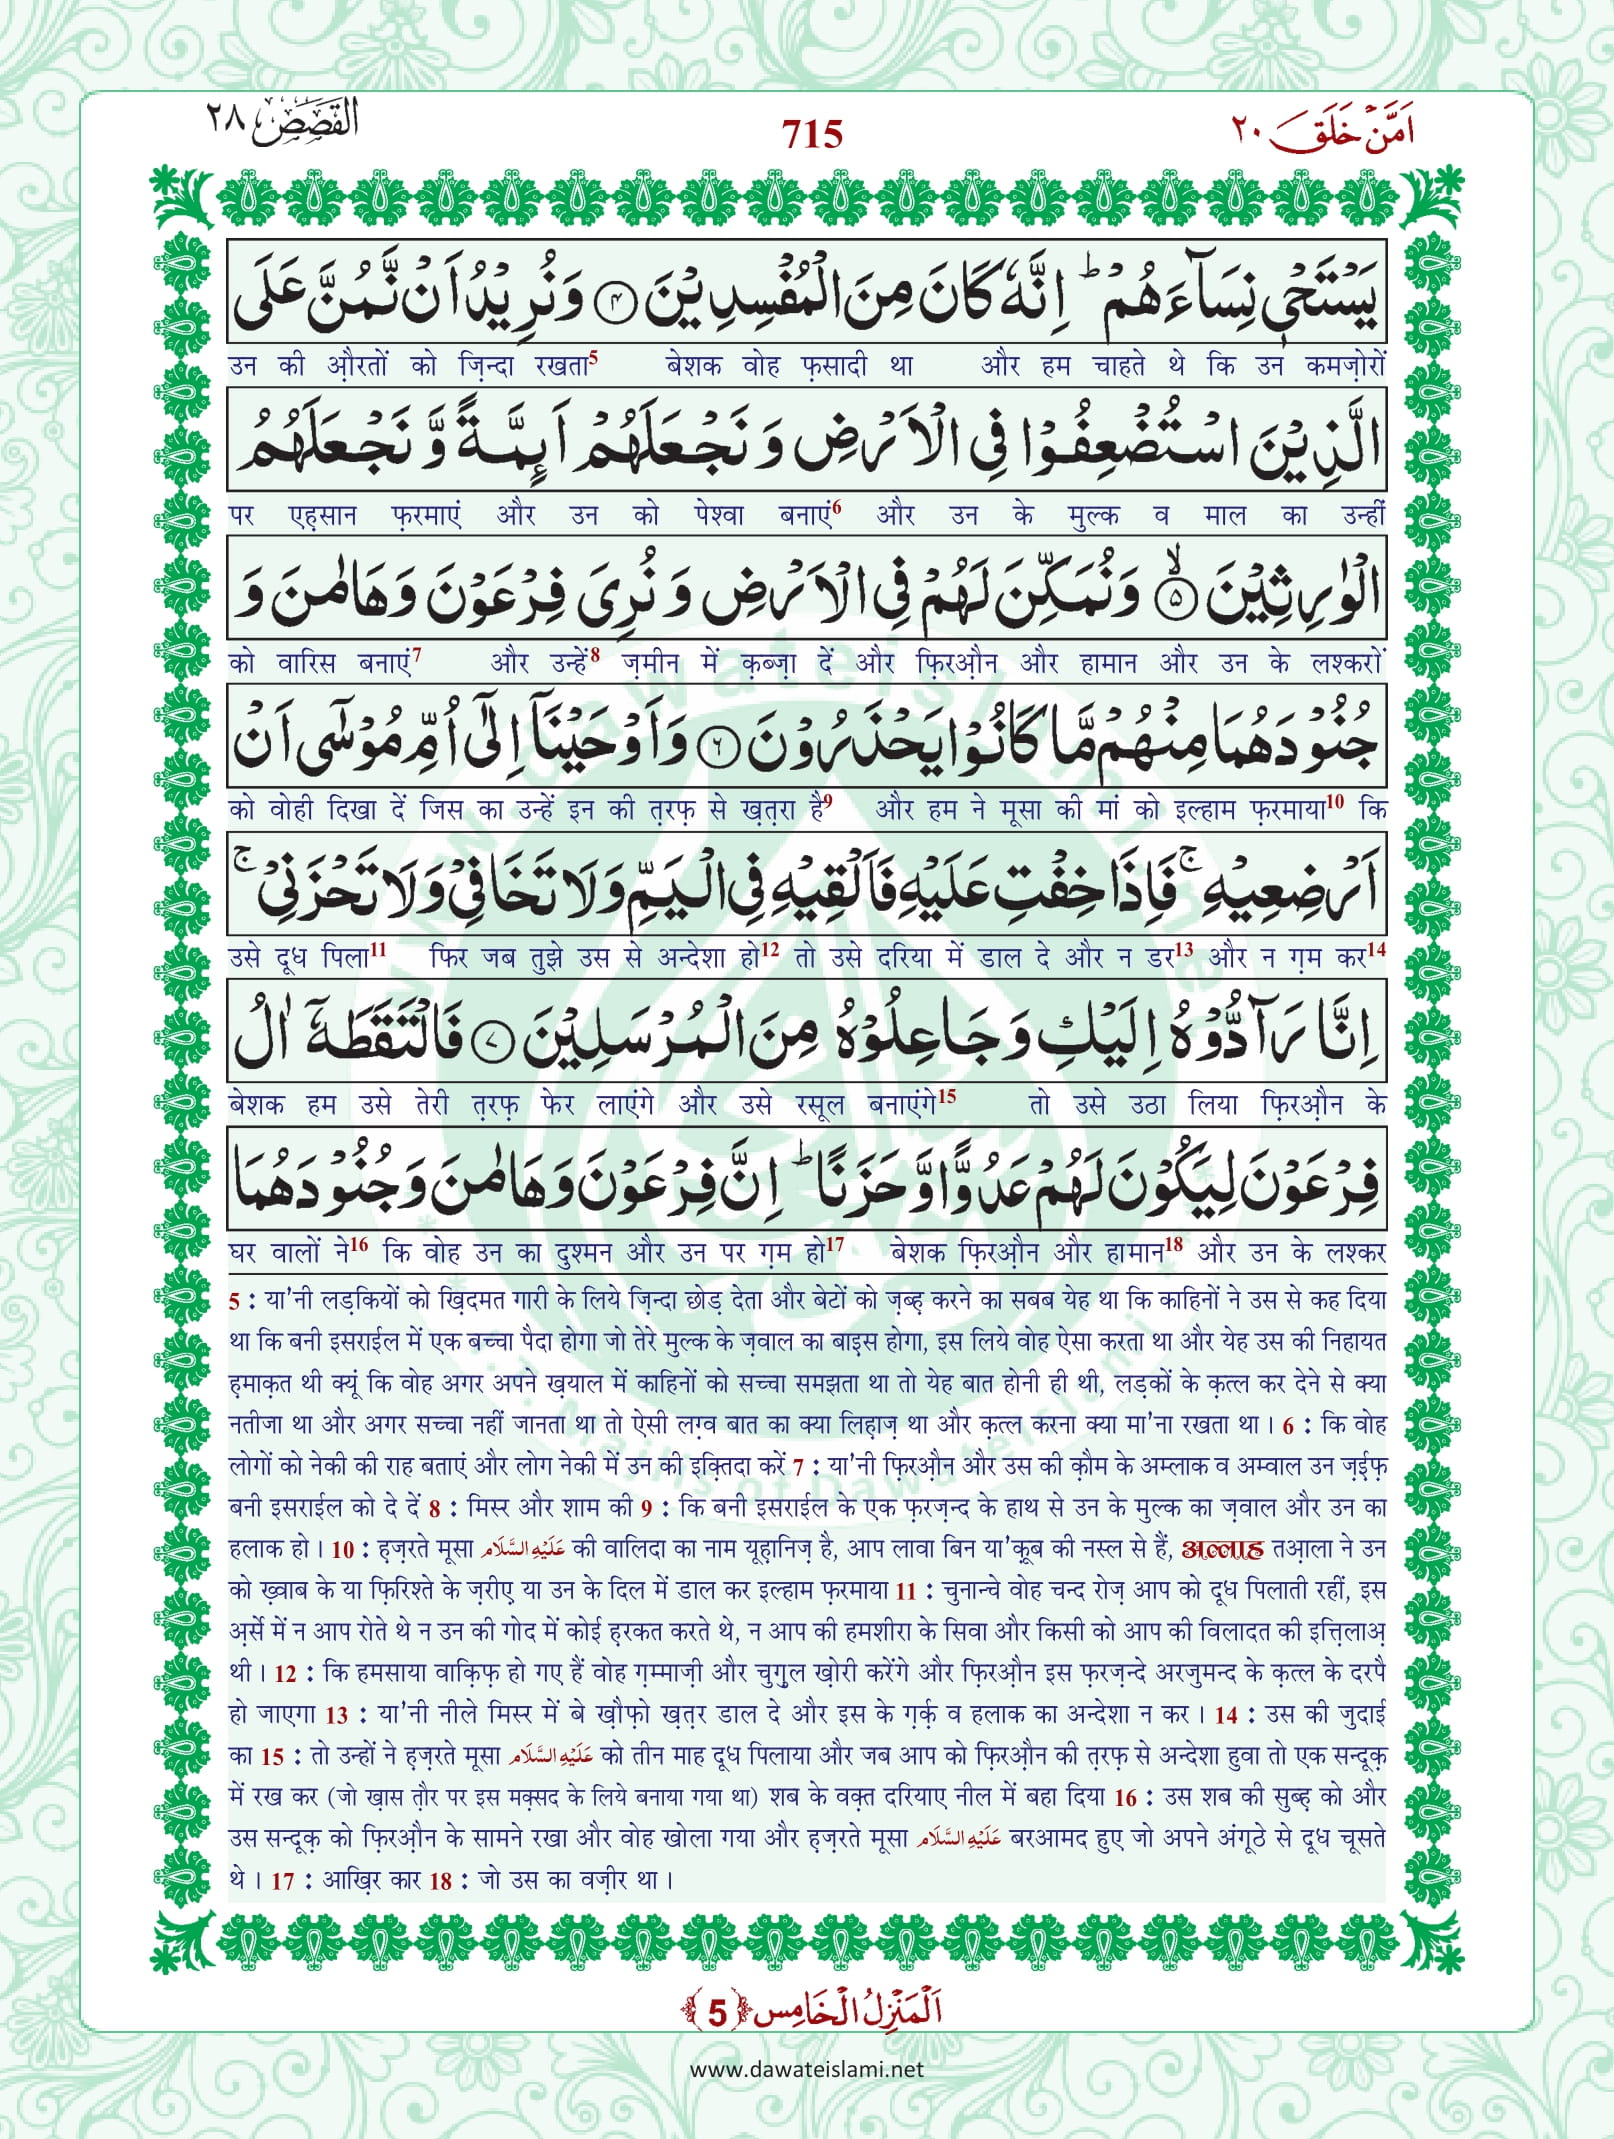 اَمَّنْ خَلَقَ ٢٠
715
القَصَص ٢٨
يَسْتَحْيٖ نِسَآءَهُمْ ؕ اِنَّهٗ كَانَ مِنَ الْمُفْسِدِيْنَ ﴿۴﴾ وَ نُرِيْدُ اَنْ نَّمُنَّ عَلَى
उन की औ़रतों को ज़िन्दा रखता5 बेशक वोह फ़सादी था और हम चाहते थे कि उन कमज़ोरों
الَّذِيْنَ اسْتُضْعِفُوْا فِى الْاَرْضِ وَ نَجْعَلَهُمْ اَىِٕمَّةً وَّ نَجْعَلَهُمُ
पर एह़सान फ़रमाएं और उन को पेश्वा बनाएं6 और उन के मुल्क व माल का उन्हीं
الْوٰرِثِيْنَ ۙ﴿۵﴾ وَ نُمَكِّنَ لَهُمْ فِى الْاَرْضِ وَ نُرِىَ فِرْعَوْنَ وَ هَامٰنَ وَ
को वारिस बनाएं7 और उन्हें8 ज़मीन में क़ब्ज़ा दें और फ़िरऔ़न और हामान और उन के लश्करों
جُنُوْدَهُمَا مِنْهُمْ مَّا كَانُوْا يَحْذَرُوْنَ ﴿۶﴾ وَ اَوْحَيْنَاۤ اِلٰۤى اُمِّ مُوْسٰۤى اَنْ
को वोही दिखा दें जिस का उन्हें इन की त़रफ़ से ख़त़रा है9 और हम ने मूसा की मां को इल्हाम फ़रमाया10 कि
اَرْضِعِيْهِ ۚ فَاِذَا خِفْتِ عَلَيْهِ فَاَلْقِيْهِ فِى الْيَمِّ وَ لَا تَخَافِىْ وَ لَا تَحْزَنِىْ ۚ
उसे दूध पिला11 फिर जब तुझे उस से अन्देशा हो12 तो उसे दरिया में डाल दे और न डर13 और न ग़म कर14
اِنَّا رَآدُّوْهُ اِلَيْكِ وَ جَاعِلُوْهُ مِنَ الْمُرْسَلِيْنَ ﴿۷﴾ فَالْتَقَطَهٗۤ اٰلُ
बेशक हम उसे तेरी त़रफ़ फेर लाएंगे और उसे रसूल बनाएंगे15 तो उसे उठा लिया फ़िरऔ़न के
فِرْعَوْنَ لِيَكُوْنَ لَهُمْ عَدُوًّا وَّ حَزَنًا ؕ اِنَّ فِرْعَوْنَ وَ هَامٰنَ وَ جُنُوْدَهُمَا
घर वालों ने16 कि वोह उन का दुश्मन और उन पर ग़म हो17 बेशक फ़िरऔ़न और हामान18 और उन के लश्कर
5 : या'नी लड़कियों को ख़िदमत गारी के लिये ज़िन्दा छोड़ देता और बेटों को ज़ब्ह़ करने का सबब येह था कि काहिनों ने उस से कह दिया
था कि बनी इसराईल में एक बच्चा पैदा होगा जो तेरे मुल्क के ज़वाल का बाइ़स होगा, इस लिये वोह ऐसा करता था और येह उस की निहायत
ह़माक़त थी क्यूं कि वोह अगर अपने ख़याल में काहिनों को सच्चा समझता था तो येह बात होनी ही थी, लड़कों के क़त्ल कर देने से क्या
नतीजा था और अगर सच्चा नहीं जानता था तो ऐसी लग़्व बात का क्या लिह़ाज़ था और क़त्ल करना क्या मा'ना रखता था । 6 : कि वोह
लोगों को नेकी की राह बताएं और लोग नेकी में उन की इक़्तिदा करें 7 : या'नी फ़िरऔ़न और उस की क़ौम के अम्लाक व अम्वाल उन ज़ई़फ़
बनी इसराईल को दे दें 8 : मिस्र और शाम की 9 : कि बनी इसराईल के एक फ़रज़न्द के हाथ से उन के मुल्क का ज़वाल और उन का
हलाक हो । 10 : ह़ज़रते मूसा عَلَيْهِ السَّلَام की वालिदा का नाम यूह़ानिज़ है, आप लावा बिन या'क़ूब की नस्ल से हैं, अल्लाह तआ़ला ने उन
को ख़्वाब के या फ़िरिश्ते के ज़रीए या उन के दिल में डाल कर इल्हाम फ़रमाया 11 : चुनान्चे वोह चन्द रोज़ आप को दूध पिलाती रहीं, इस
अ़र्से में न आप रोते थे न उन की गोद में कोई ह़रकत करते थे, न आप की हमशीरा के सिवा और किसी को आप की विलादत की इत्त़िलाअ़
थी । 12 : कि हमसाया वाक़िफ़ हो गए हैं वोह ग़म्माज़ी और चुग़ुल ख़ोरी करेंगे और फ़िरऔ़न इस फ़रज़न्दे अरजुमन्द के क़त्ल के दरपै
हो जाएगा 13 : या'नी नीले मिस्र में बे ख़ौफ़ो ख़त़र डाल दे और इस के ग़र्क़ व हलाक का अन्देशा न कर । 14 : उस की जुदाई
का 15 : तो उन्हों ने ह़ज़रते मूसा عَلَيْهِ السَّلَام को तीन माह दूध पिलाया और जब आप को फ़िरऔ़न की त़रफ़ से अन्देशा हुवा तो एक सन्दूक़
में रख कर (जो ख़ास त़ौर पर इस मक़्सद के लिये बनाया गया था) शब के वक़्त दरियाए नील में बहा दिया 16 : उस शब की सुब्ह़ को और
उस सन्दूक़ को फ़िरऔ़न के सामने रखा और वोह खोला गया और ह़ज़रते मूसा عَلَيْهِ السَّلَام बरआमद हुए जो अपने अंगूठे से दूध चूसते
थे । 17 : आख़िर कार 18 : जो उस का वज़ीर था ।
اَلْمَنْزِلُ الْخَامِس ﴿5﴾
www.dawateislami.net